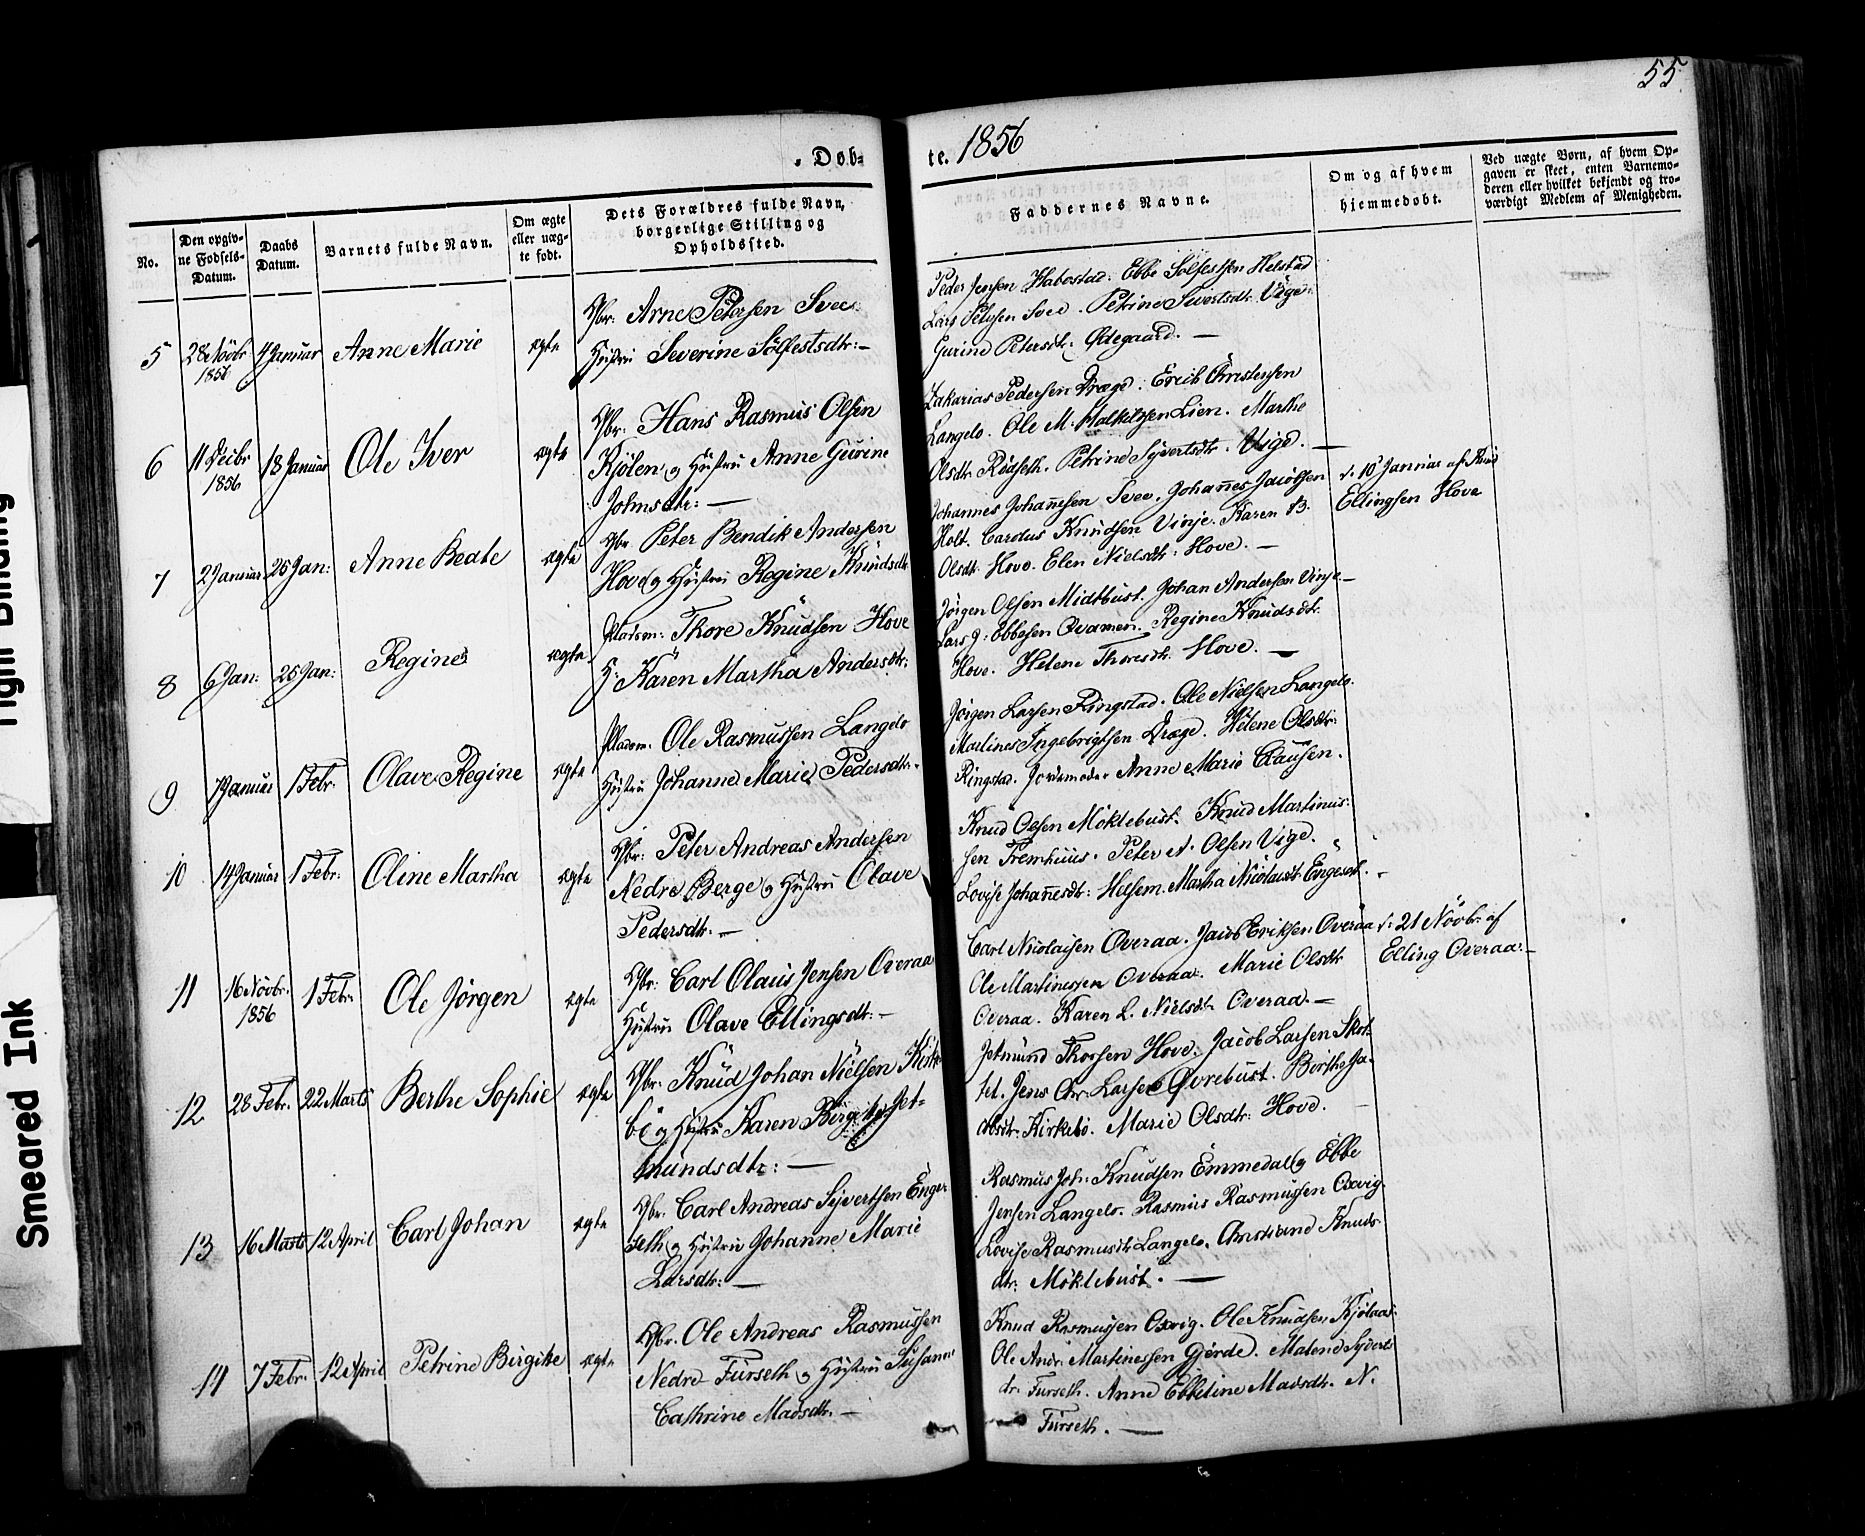 55
Døb-
te. 1856
No.
Den opgiv-
ne Fødsels-
Datum.
Daabs
Datum.
Barnets fulde Navn.
Om ægte
eller uæg-
te født.
Dets Forældres fulde Navn,
borgerlige Stilling og
Opholdssted.
Faddernes Navne.
Om og af hvem
hjemmedøbt.
Ved uægte Børn, af hvem Op-
gaven er skeet, enten Barnemo-
deren eller hvilket bekjendt og tro-
værdigt Medlem af Menigheden.
5
28 Novbr
4 Januar
Anne Marie
ægte
Gbr: Arne Petersen Svee
Hustru Severine Sølfestsdtr: —
Peder Jensen Habostad. Ebbe Sølfestsen Helstad
Lars Petersen Svee. Petrine Sivertsdtr Vige.
Gurine Petersdtr. Ødegaard. —
6
11 Decbr
1856
18 Januar
Ole Iver
ægte
Gbr: Hans Rasmus Olsen
Kjölen og Hustru Anne Gurine
Johnsdtr: —
Zakarias Pedersen Dræge. Erik Christensen
Langelo. Ole M. Lien. Marthe
Olsdtr Rödseth. Petrine Syvertsdtr. Vige. —
7
2 Januar
25 Jan:
Anne Beate
ægte
Gbr. Peter Bendik Andersen
Hove og Hustru Regine Knudsdtr
Johannes Johannesen Svee. Johannes Jacobsen
Holt. Cardus Knudsen Vinje. Karen B.
Olsdtr. Hove. Elen Nielsdtr. Hove. —
d. 10' Januar af Knud
Ellingsen Hove
8
6 Jan:
25 Jan:
Regine
ægte
Pladsm: Thore Knudsen Hove
H. Karen Martha Andersdtr:
Jørgen Olsen Midtbust. Johan Andersen Vinje —
Lars J. Ebbesen Qvamen. Regine Knudsdtr.
Hove. Helene Thoresdtr. Hove. —
9
7 Januar
1 Febr.
Olave Regine
ægte
Pladsm: Ole Rasmussen Langelo
Hustru Johanne Marie Pedersdtr.
Jørgen Larsen Ringstad. Ole Nielsen Langelo.
Martines Ingebrigtsen Dræge. Helene Olsdtr:
Ringstad. Jordemoder Anne Marie Clausen.
10
14 Januar
1 Febr:
Oline Martha
ægte
Gbr: Peter Andreas Andersen
Nedre Berge og Hustru Olave
Pedersdtr. —
Knud Olsen Möklebust. Knud Martinus-
sen Fremhuus. Peter A. Olsen Vige.
Lovise Johannesdtr: Helsem. Martha Nicolaisdtr. Engeset.
11
16 Novbr.
1856
1 Febr.
Ole Jörgen
ægte
Gbr: Carl Olaus Jensen Overaa
Hustru Olave Ellingsdtr: —
Carl Nicolaisen Overaa. Jacob Eriksen Overaa
Ole Martinussen Overaa. Marie Olsdtr
Overaa. Karen L. Nielsdtr. Overaa. —
d: 21 Novbr. af
Elling Overaa: —
12
28 Febr.
22 Marts
Berthe Sophie
ægte
Gbr. Knud Johan Nielsen Kirke
bö og Hustru Karen Birgitte Jet-
mundsdtr: —
Jetmund Thorsen Hove. Jacob Larsen Skot-
tet. Jens Chr. Larsen Övrebust. Berthe Ja-
cobsdtr. Kirkebö. Marie Olsdtr: Hove.
13
16 Marts
12 April
Carl Johan
ægte
Gbr. Carl Andreas Sejvertsen Enge-
seth og Hustru Johanne Marie
Larsdtr: —
Rasmus Joh: Knudsen Emmedal og Ebbe
Jensen Langelo. Rasmus Rasmussen Oxvig.
Lovise Rasmusdtr. Langelo. Knuds-
dtr. Möklebust. —
14
7 Febr.
12 April
Petrine Birgitte
ægte
Gbr. Ole Andreas Rasmussen
Nedre Furseth og Hustru Susanne
Cathrine Madsdtr. —
Knud Rasmussen Oxvig. Ole Knudsen Kjölaas
Ole Andr. Martinussen Gjerde. Malene Syverts
dr. Furseth. Anne Ebbeline Madsdtr. N.
Furseth. —
Tight Binding
Smeared Ink